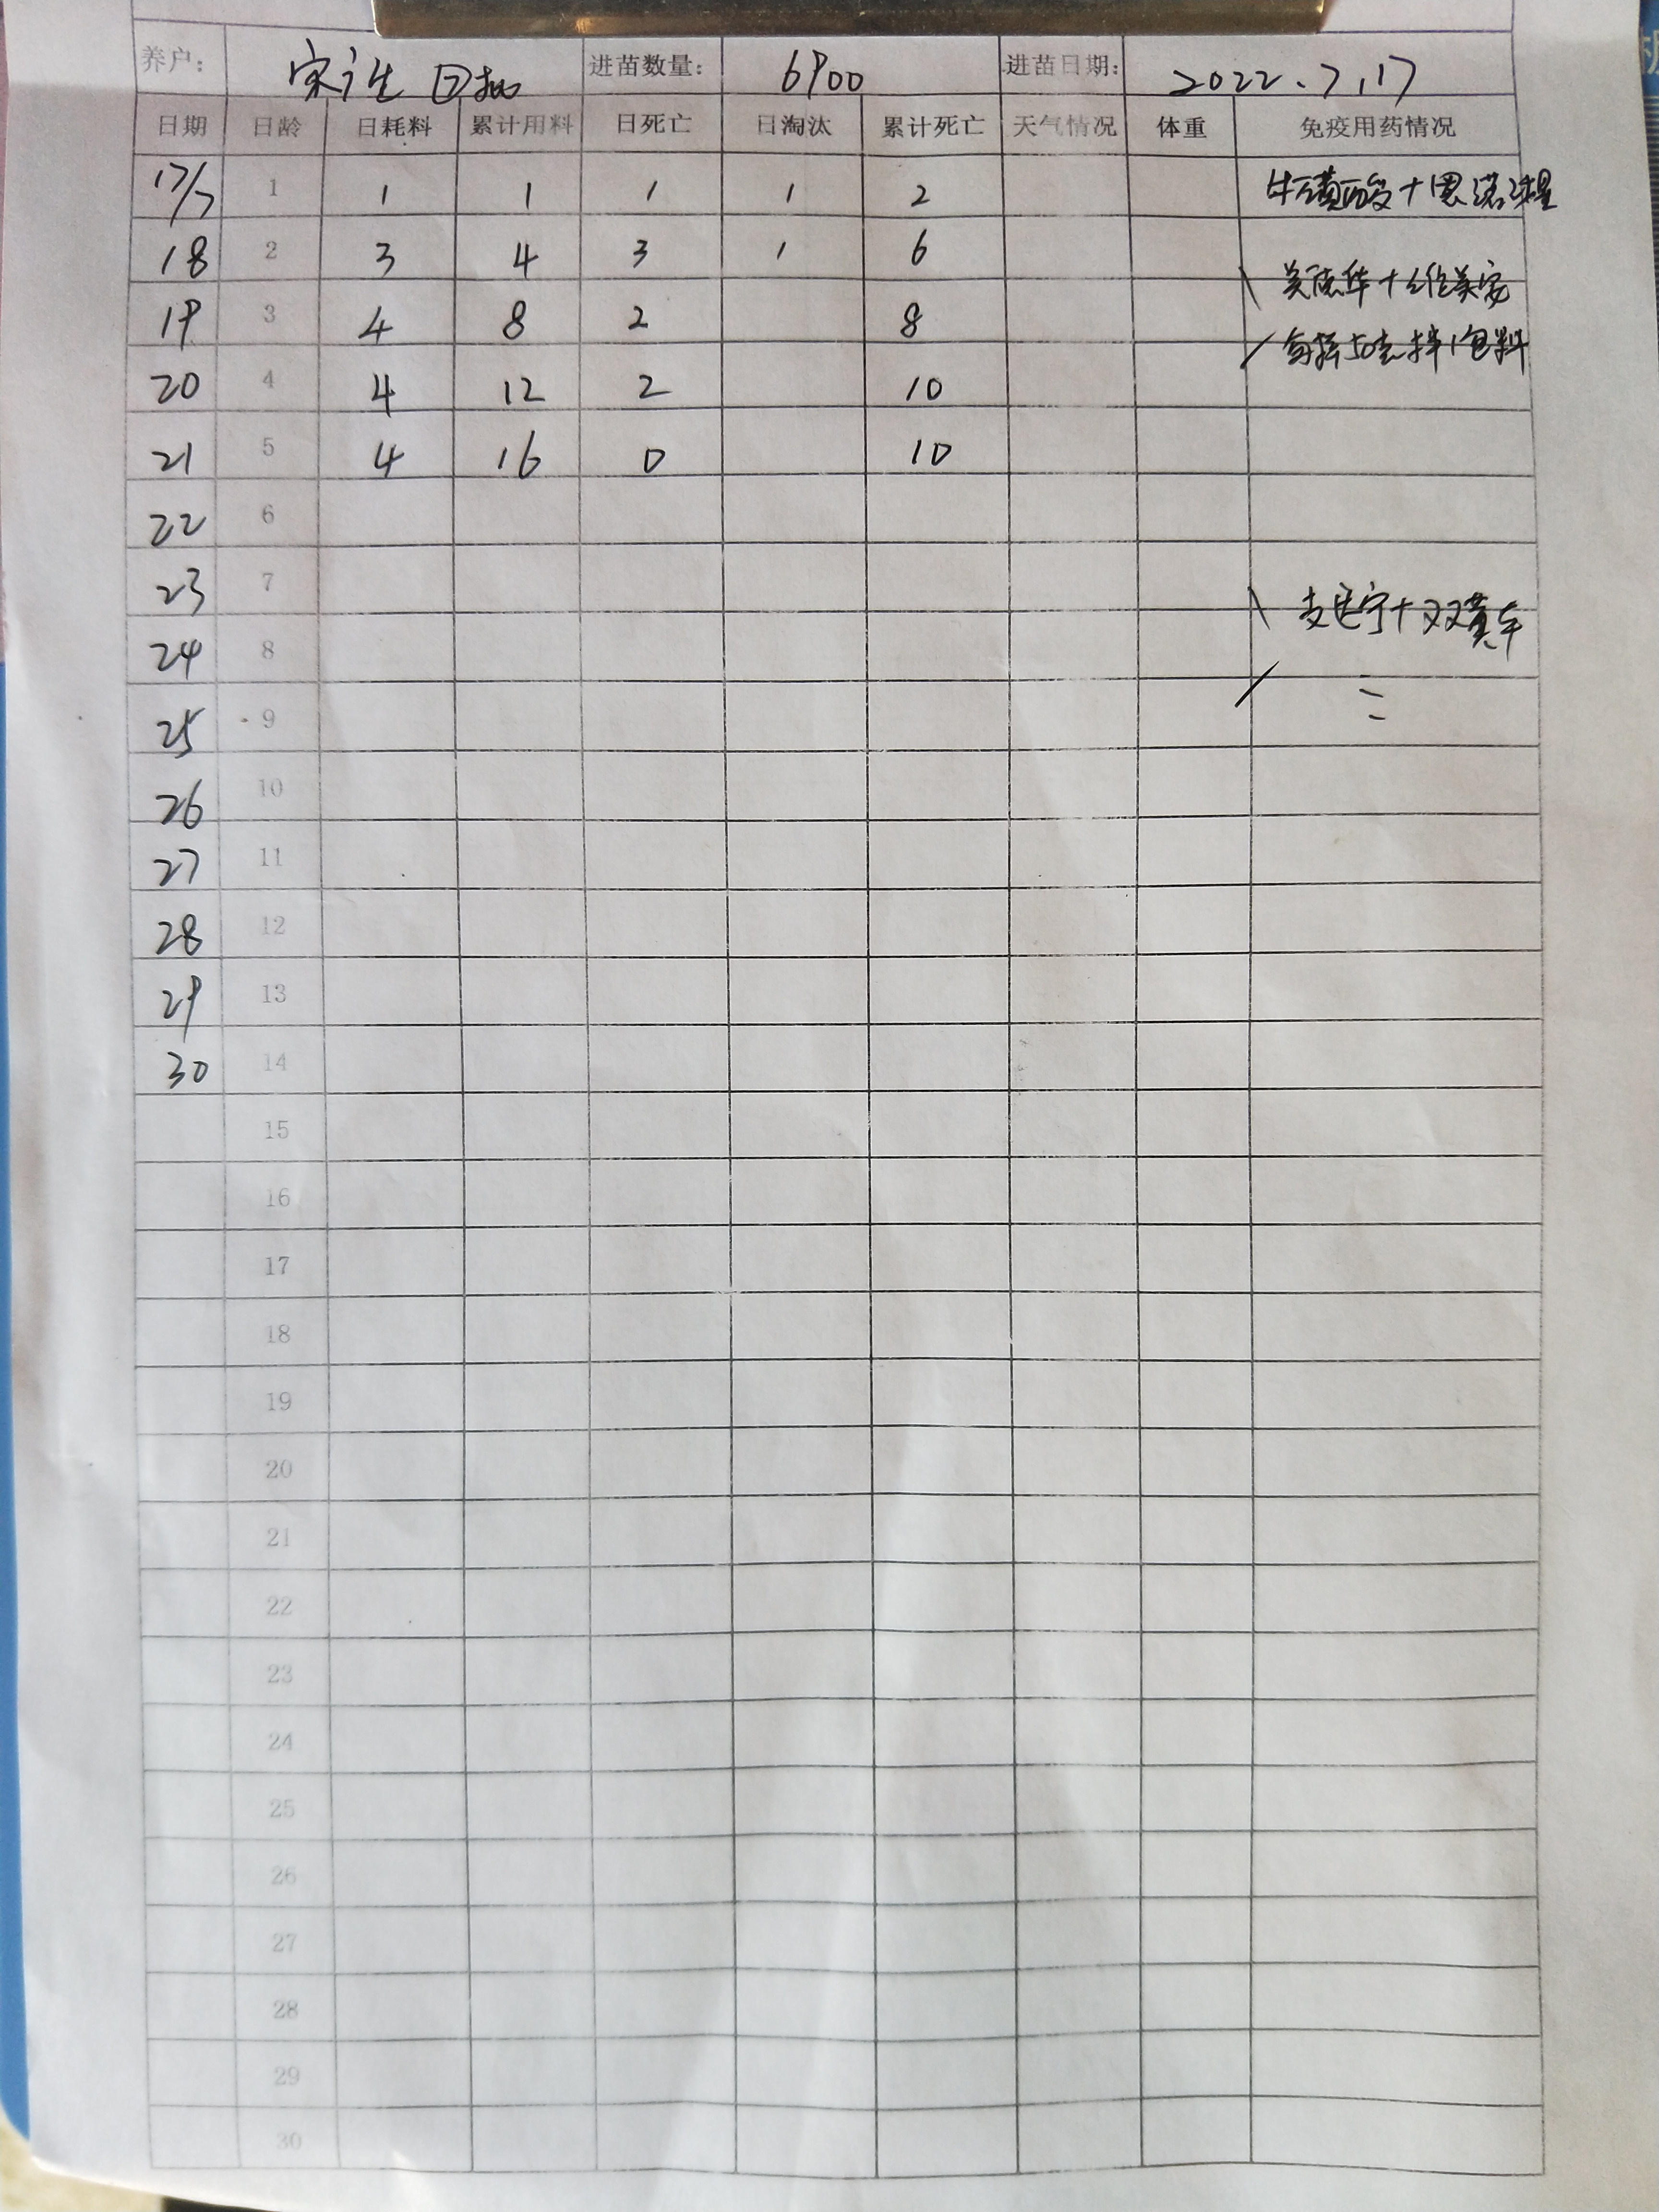 养户： 宋 进苗数量： 6900 进苗日期： 2022.7.17
日期 日龄 日耗料 累计用料 日死亡 日淘汰 累计死亡 天气情况 体重 免疫用药情况
17/7 1 1 1 1 1 2
18 2 3 4 3 1 6
19 3 4 8 2 8
20 4 4 12 2 10
21 5 4 16 0 10
22 6
23 7
24 8
25 9
26 10
27 11
28 12
29 13
30 14
15
16
17
18
19
20
21
22
23
24
25
26
27
28
29
30